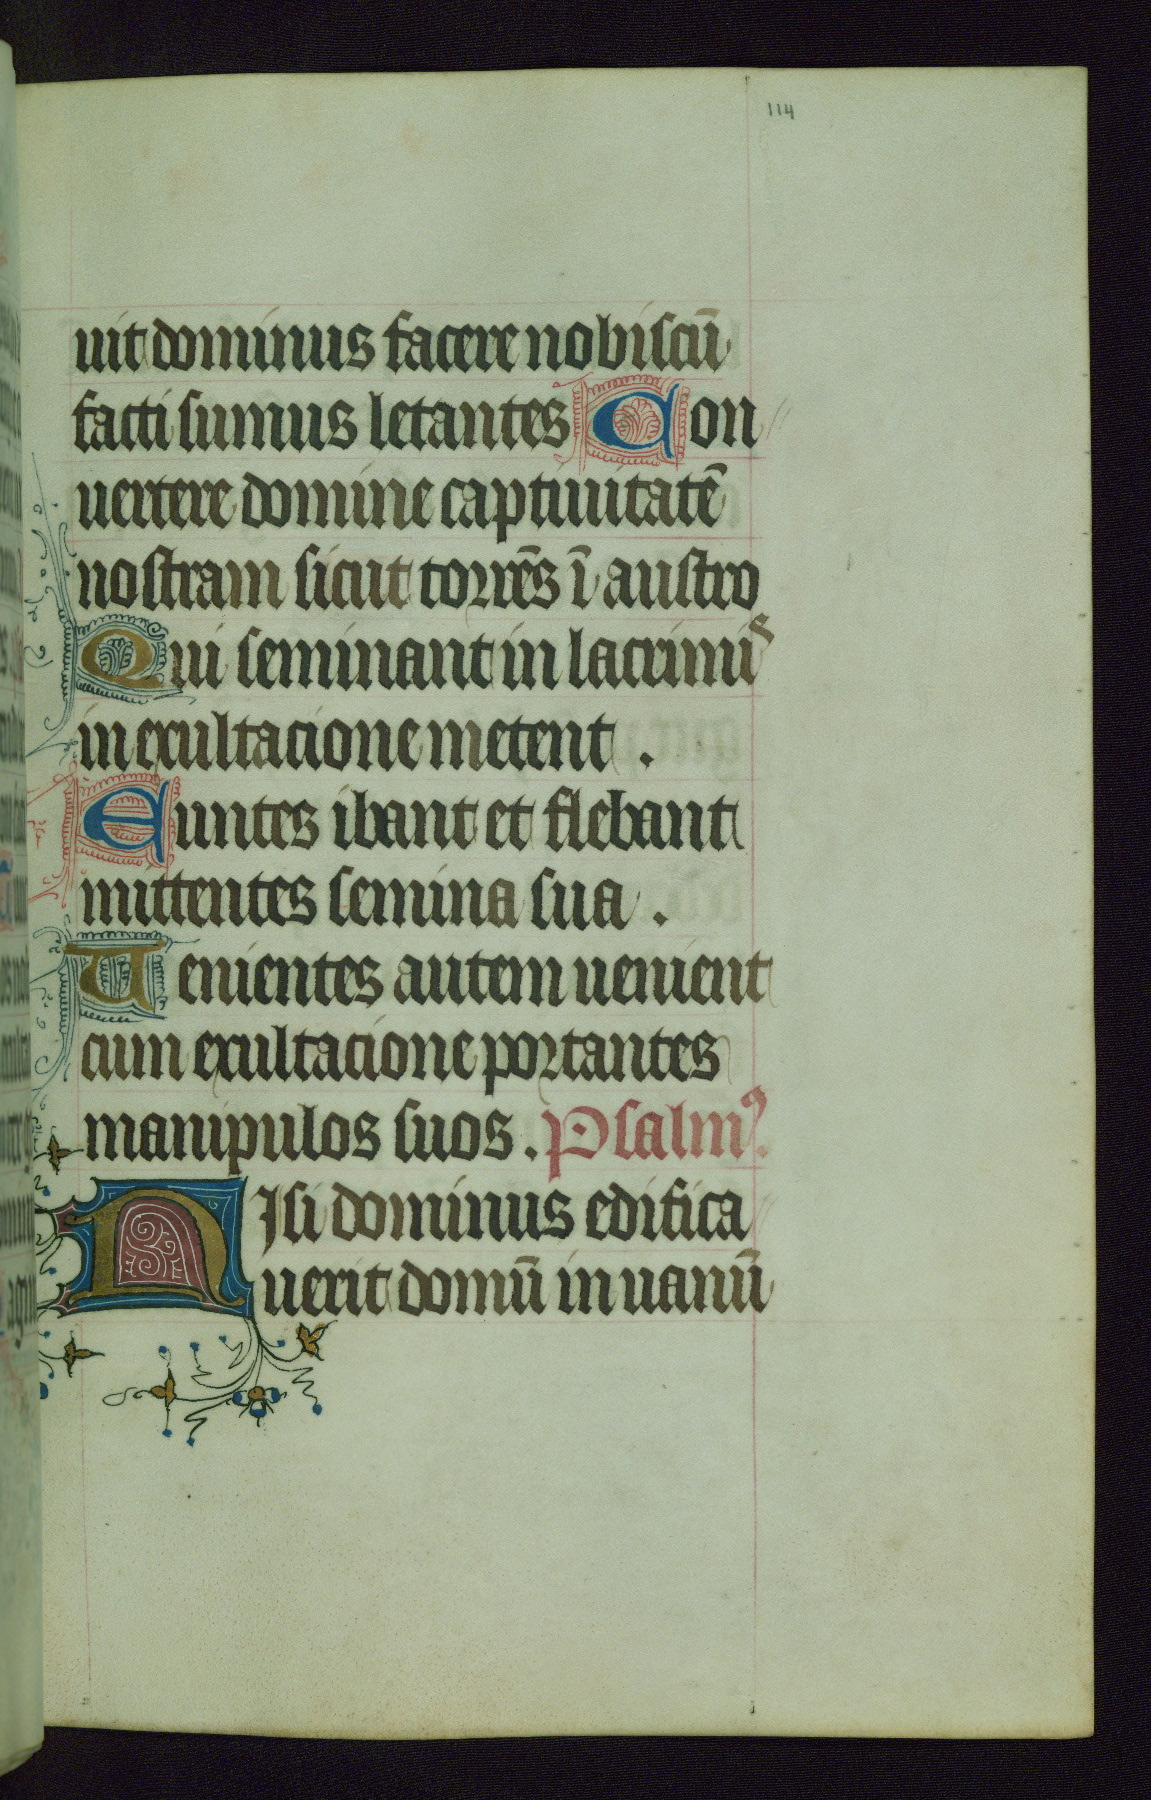 114
uit dominus facere nobiscū
facti sumus letantes Con
uertere domine captiuitatē
nostram sicut torrēs ī austro
Qui seminant in lacrimis
in exultacione metent .
Euntes ibant et flebant
mittentes semina sua .
Uenientes autem uenient
cum exultacione portantes
manipulos suos . Psalmꝰ.
NIsi dominus edifica
uerit domū in uanū